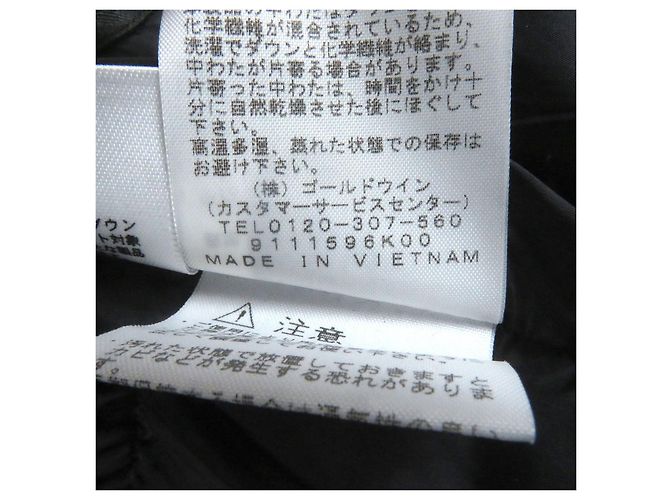 化学繊維が混合されているため、
洗濯でダウンと化学繊維が絡まり、
中わたが片寄る場合があります。
片寄った中わたは、時間をかけ十
分に自然乾燥させた後にほぐして
下さい。
高温多湿、蒸れた状態での保存は
お避け下さい。
(株)ゴールドウイン
(カスタマーサービスセンター)
TEL0120-307-560
9111596K00
MADE IN VIETNAM
ダウン
ト対象
な製品
注意
汚れた状態で放置しておきますと
カビなどが発生する恐れがありま
す。
場合は通気性の良い